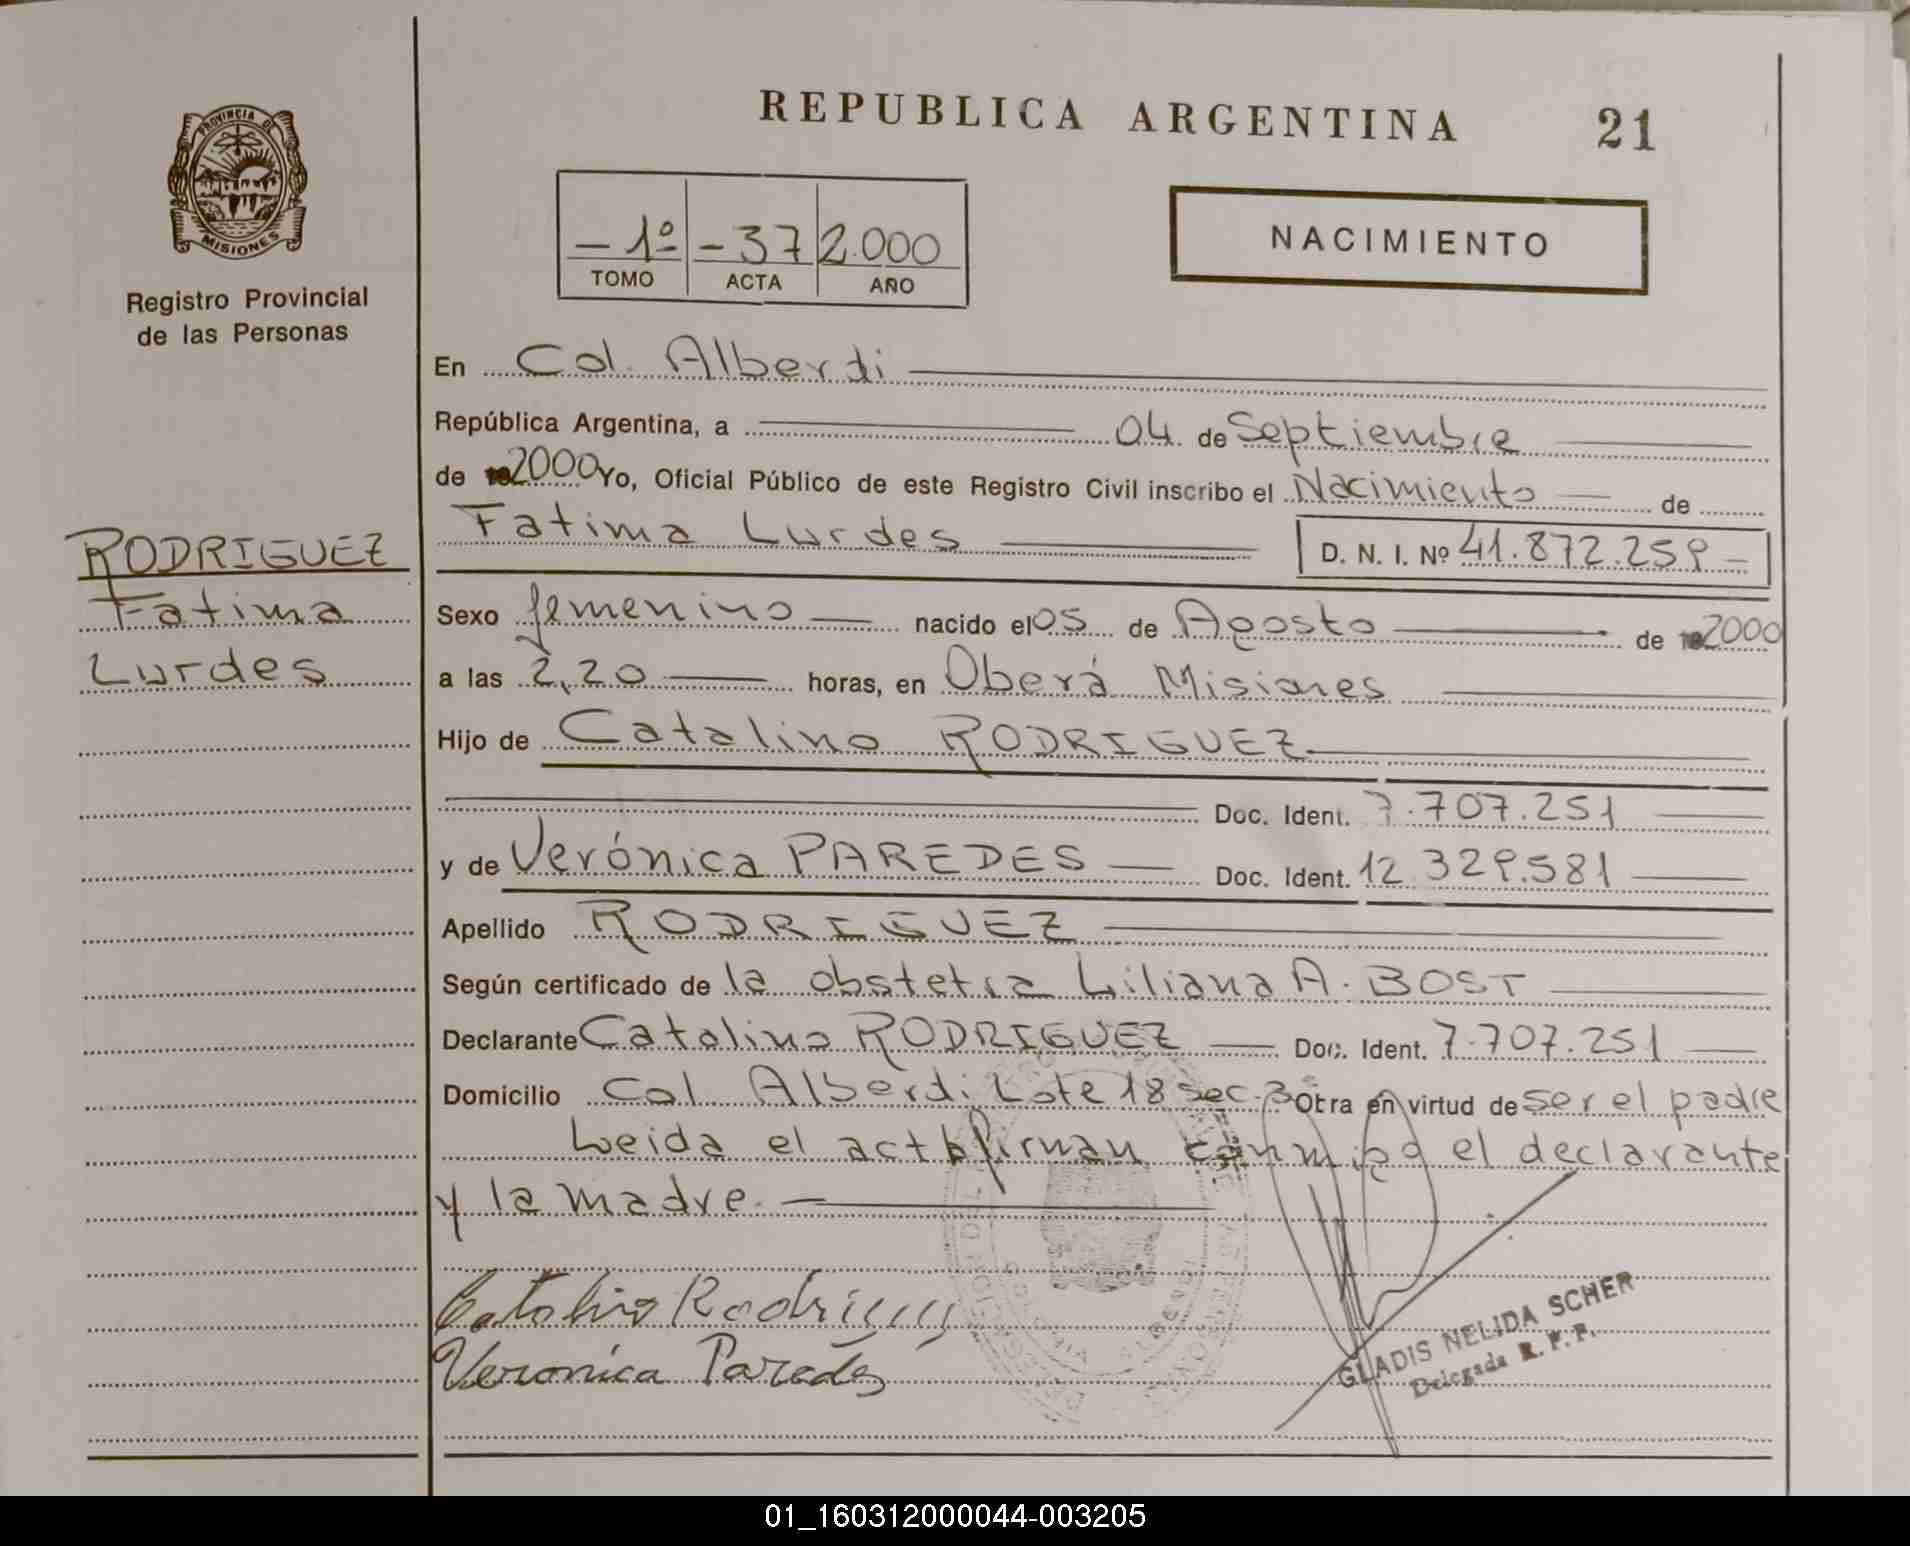 REPUBLICA ARGENTINA 21
PROVINCIA DE
MISIONES
Registro Provincial
de las Personas
- 1º - 37 2.000
TOMO ACTA AÑO
NACIMIENTO
En Col. Alberdi
República Argentina, a 04 de Septiembre
de 2000 Yo, Oficial Público de este Registro Civil inscribo el Nacimiento de
Fatima Lurdes D. N. I. Nº 41.872.259 -
RODRIGUEZ
Fatima
Lurdes
Sexo femenino nacido el 05 de Agosto de 2000
a las 2,20 horas, en Oberá Misiones
Hijo de Catalino RODRIGUEZ
Doc. Ident. 7.707.251
y de Verónica PAREDES Doc. Ident. 12.329.581
Apellido RODRIGUEZ
Según certificado de la obstetra Liliana A. BOST
Declarante Catalino RODRIGUEZ Doc. Ident. 7.707.251
Domicilio Col Alberdi Lote 18 Sec. 3º Otra en virtud de ser el padre
Leida el acta firman conmigo el declarante
y la madre.
Catalino Rodriguez
Veronica Paredes
GLADIS NELIDA SCHER
Delegada R. P. P.
01_160312000044-003205